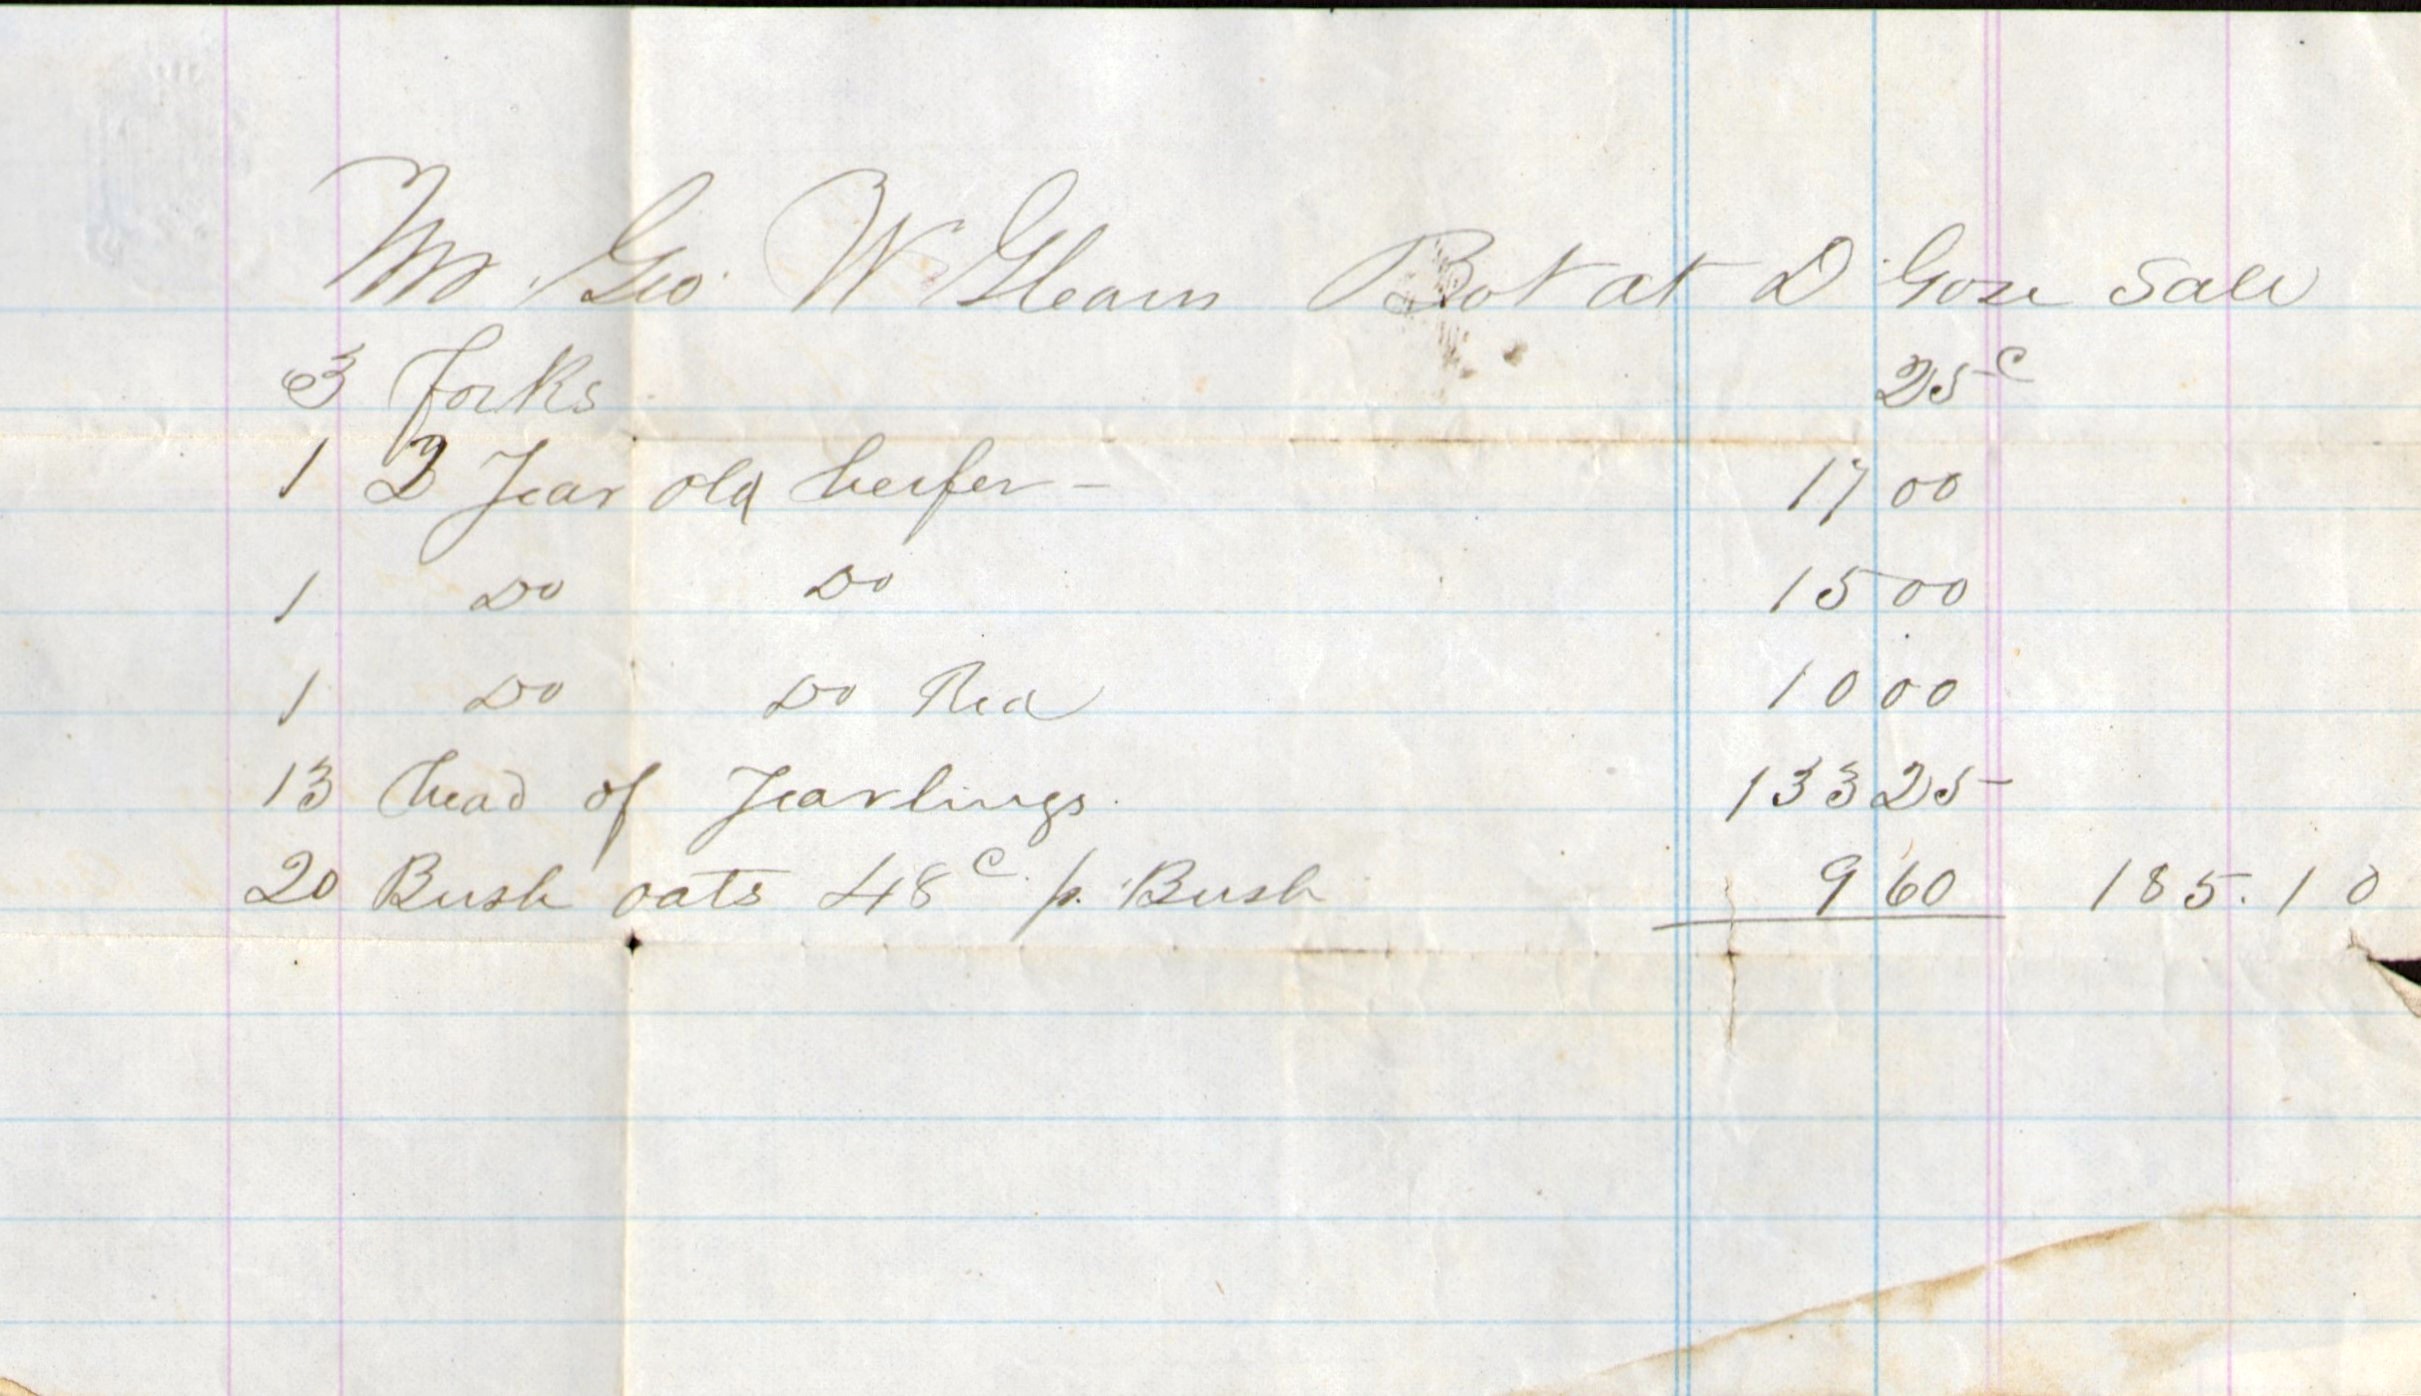 Mr. Geo. W Gleam Bot at D Gose Sale
3 forks 25c
1 2 Year old heifer - 17 00
1 Do Do 15 00
1 Do Do Red 10 00
13 head of Yearlings. 133 25
20 Bush oats 48c p. Bush 9 60 185.10